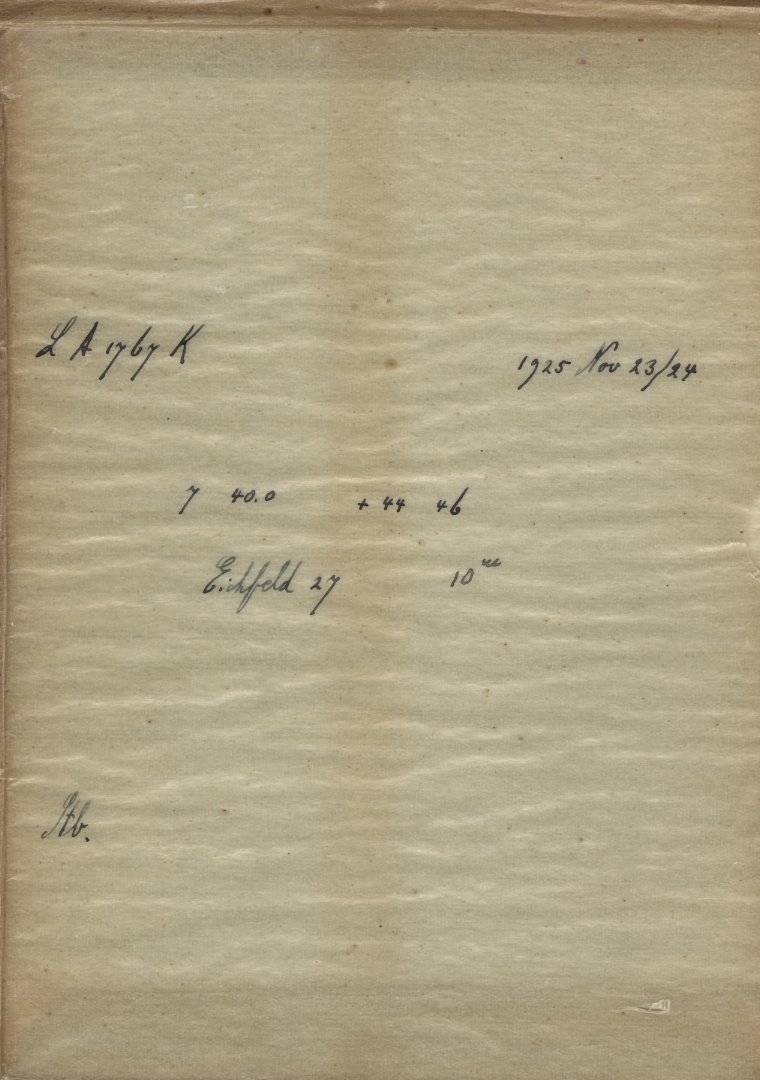 L A 1767 K 1925 Nov 23/24
7 40.0 + 44 46
Eichfeld 27 10ᵐ
Stb.